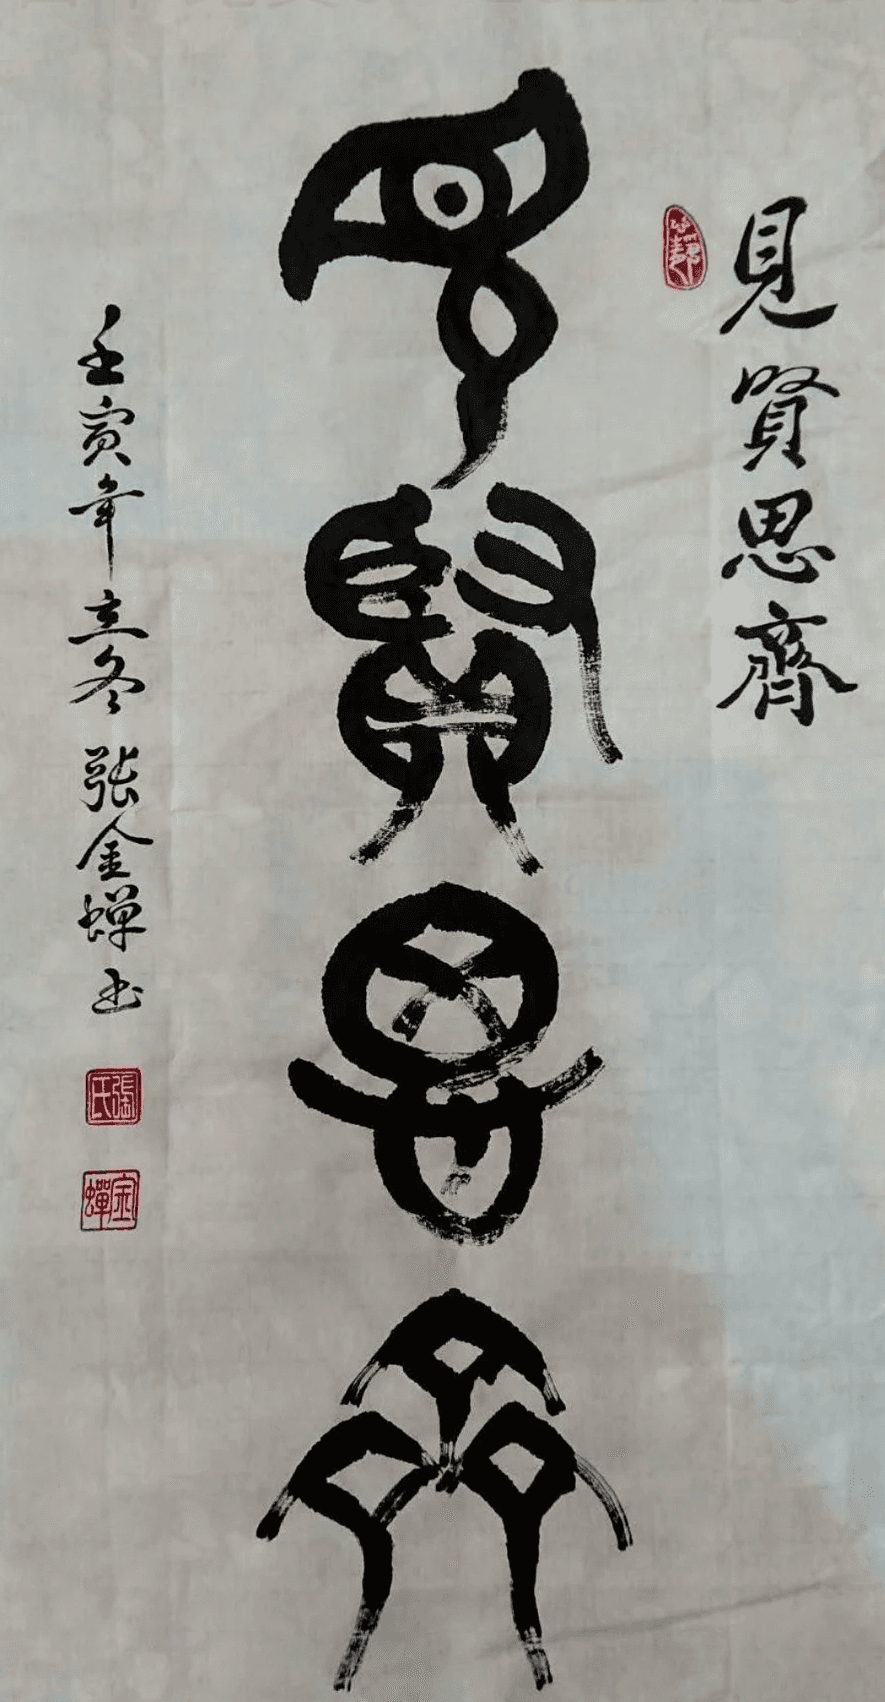 見賢思齊
見賢思齊
壬寅年立冬 張金蟬书
張氏
金蟬